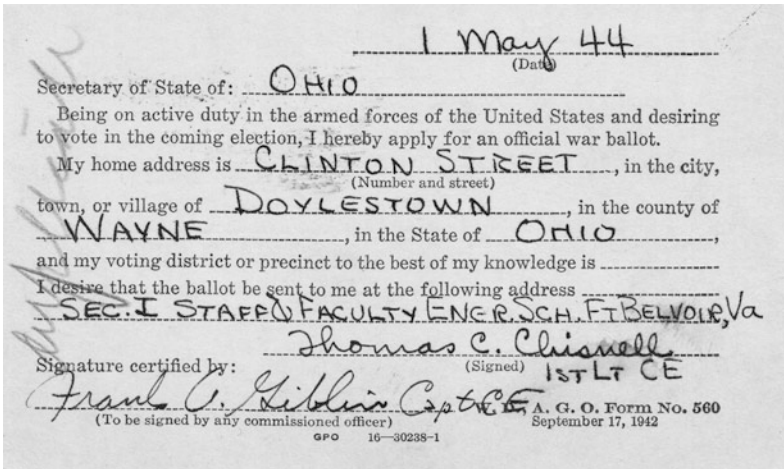 1 May 44
(Date)
Secretary of State of: OHIO
Being on active duty in the armed forces of the United States and desiring
to vote in the coming election, I hereby apply for an official war ballot.
My home address is CLINTON STREET, in the city,
(Number and street)
town, or village of DOYLESTOWN, in the county of
WAYNE, in the State of OHIO,
and my voting district or precinct to the best of my knowledge is
I desire that the ballot be sent to me at the following address
SEC. I STAFF & FACULTY ENGR. SCH. FT BELVOIR, Va
Thomas C. Chisnell
Signature certified by: (Signed) 1ST LT CE
Frank C. Giblin Capt. C.E. A. G. O. Form No. 560
(To be signed by any commissioned officer) September 17, 1942
GPO 16—30238-1